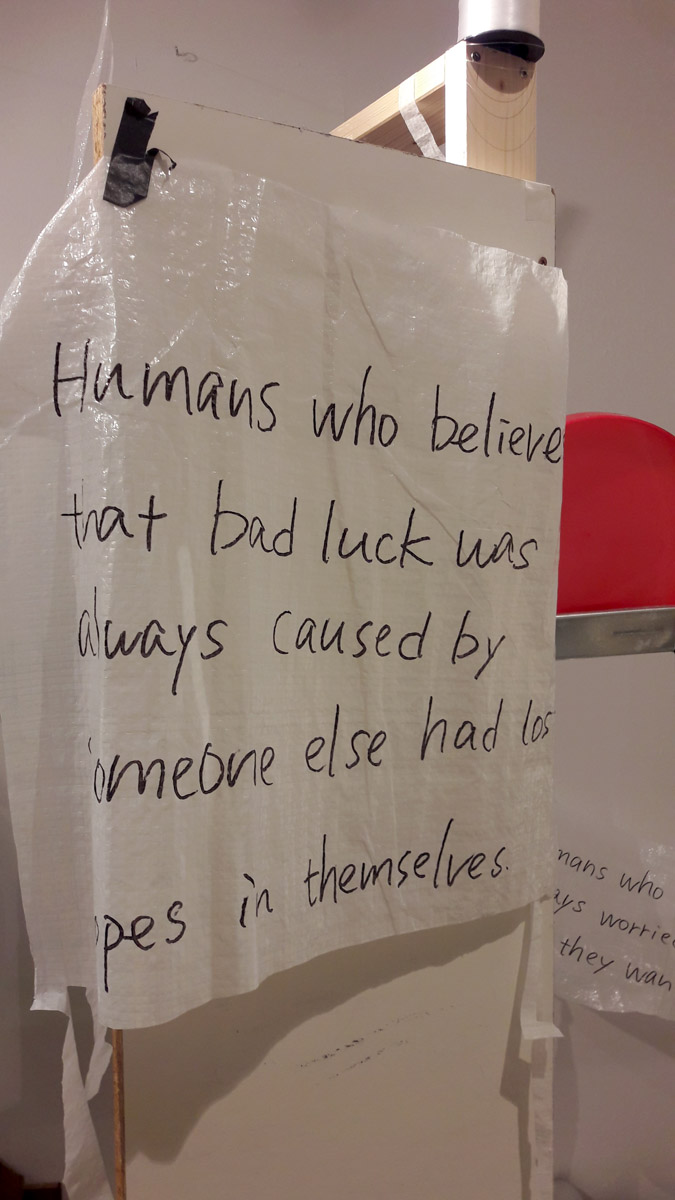 Humans who believe
that bad luck was
always caused by
omeone else had los
pes in themselves.
mans who
ays worrie
they wan